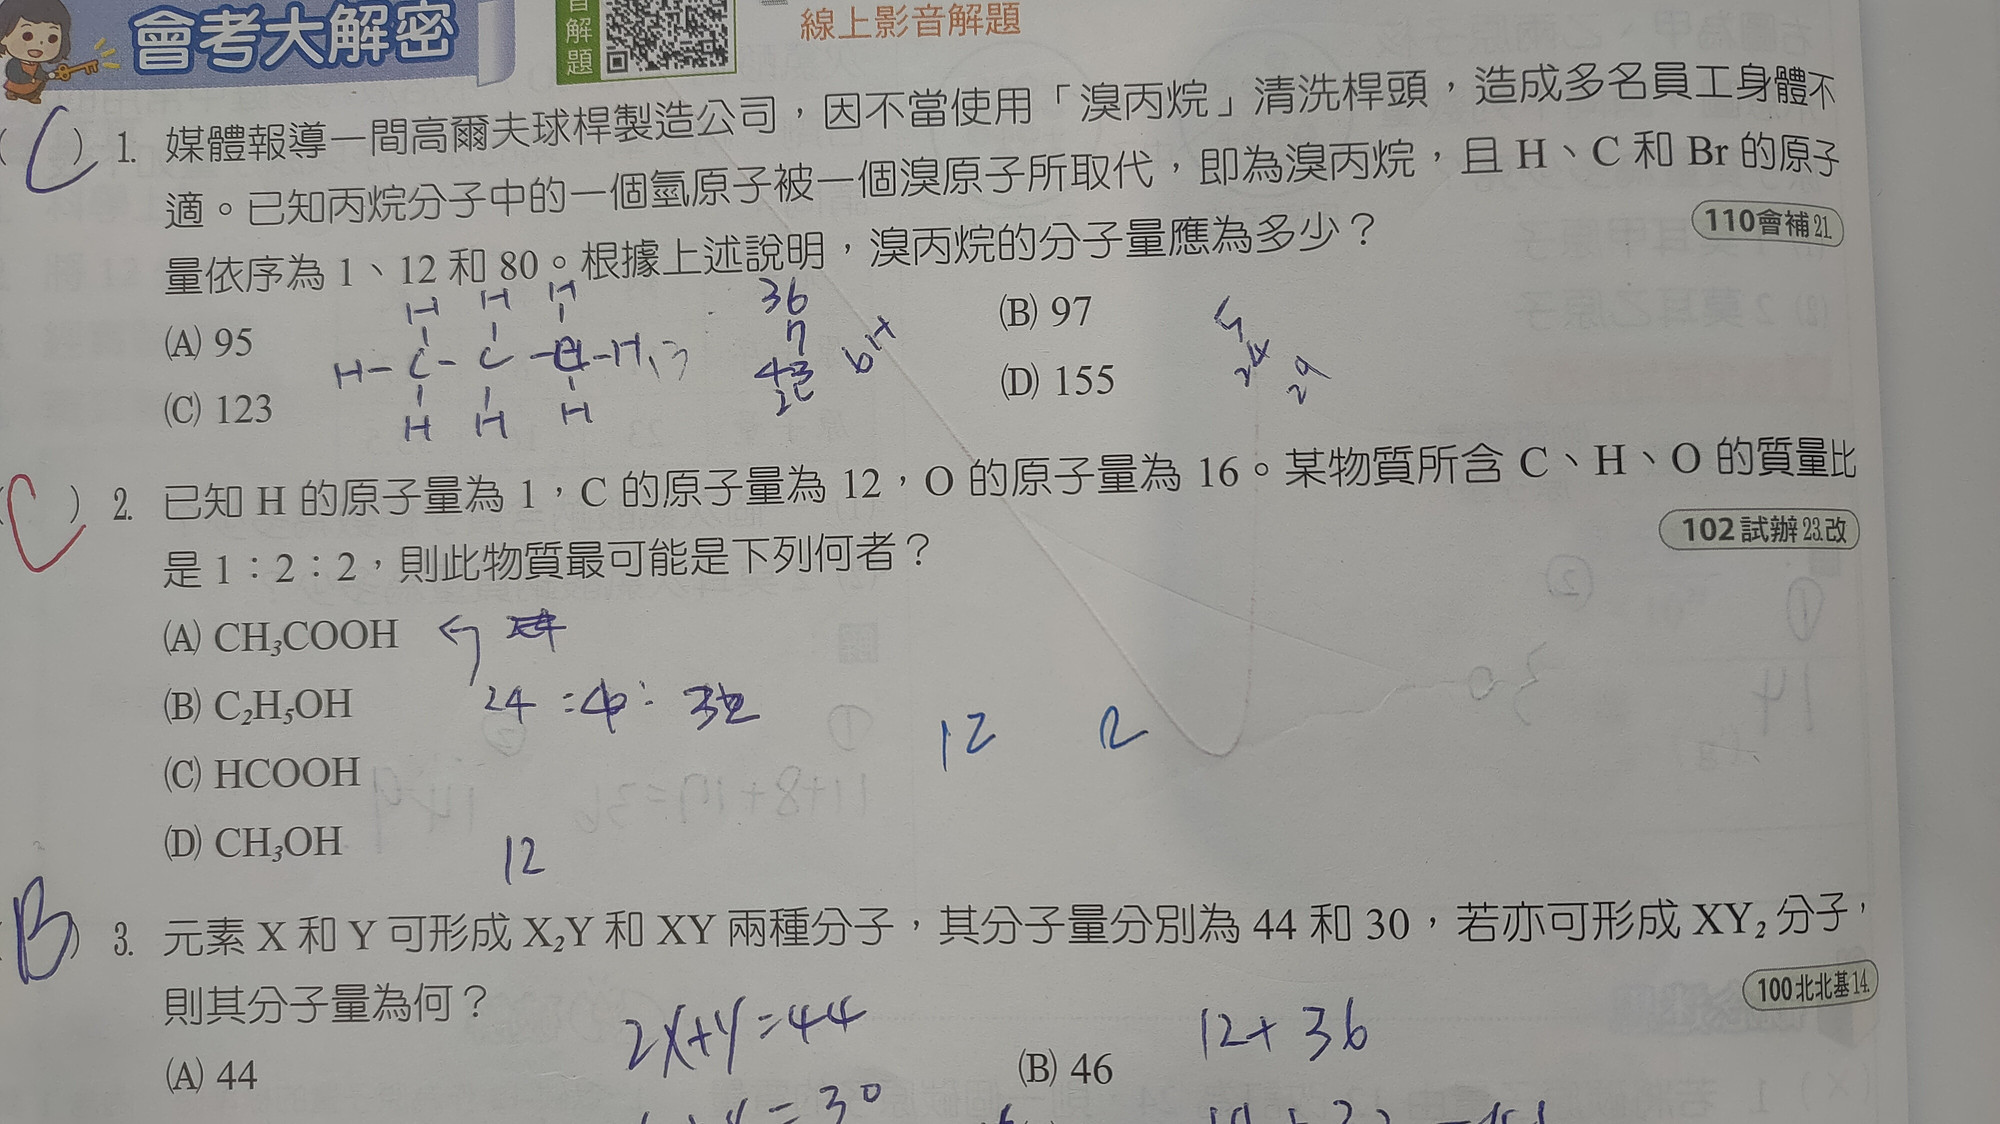 會考大解密
解題
線上影音解題
(C) 1. 媒體報導一間高爾夫球桿製造公司，因不當使用「溴丙烷」清洗桿頭，造成多名員工身體不
適。已知丙烷分子中的一個氫原子被一個溴原子所取代，即為溴丙烷，且 H、C 和 Br 的原子
量依序為 1、12 和 80。根據上述說明，溴丙烷的分子量應為多少？
110會補21.
(A) 95
(B) 97
(C) 123
(D) 155
H H H
H-C-C--H
H H H
36
7
43
24
29
(C) 2. 已知 H 的原子量為 1，C 的原子量為 12，O 的原子量為 16。某物質所含 C、H、O 的質量比
是 1：2：2，則此物質最可能是下列何者？
102試辦23.改
(A) CH₃COOH
(B) C₂H₅OH
24 : 4 : 32
12 2
(C) HCOOH
(D) CH₃OH
12
(B) 3. 元素 X 和 Y 可形成 X₂Y 和 XY 兩種分子，其分子量分別為 44 和 30，若亦可形成 XY₂ 分子，
則其分子量為何？
100北北基14.
2X+Y=44
12+36
(A) 44
(B) 46
=30